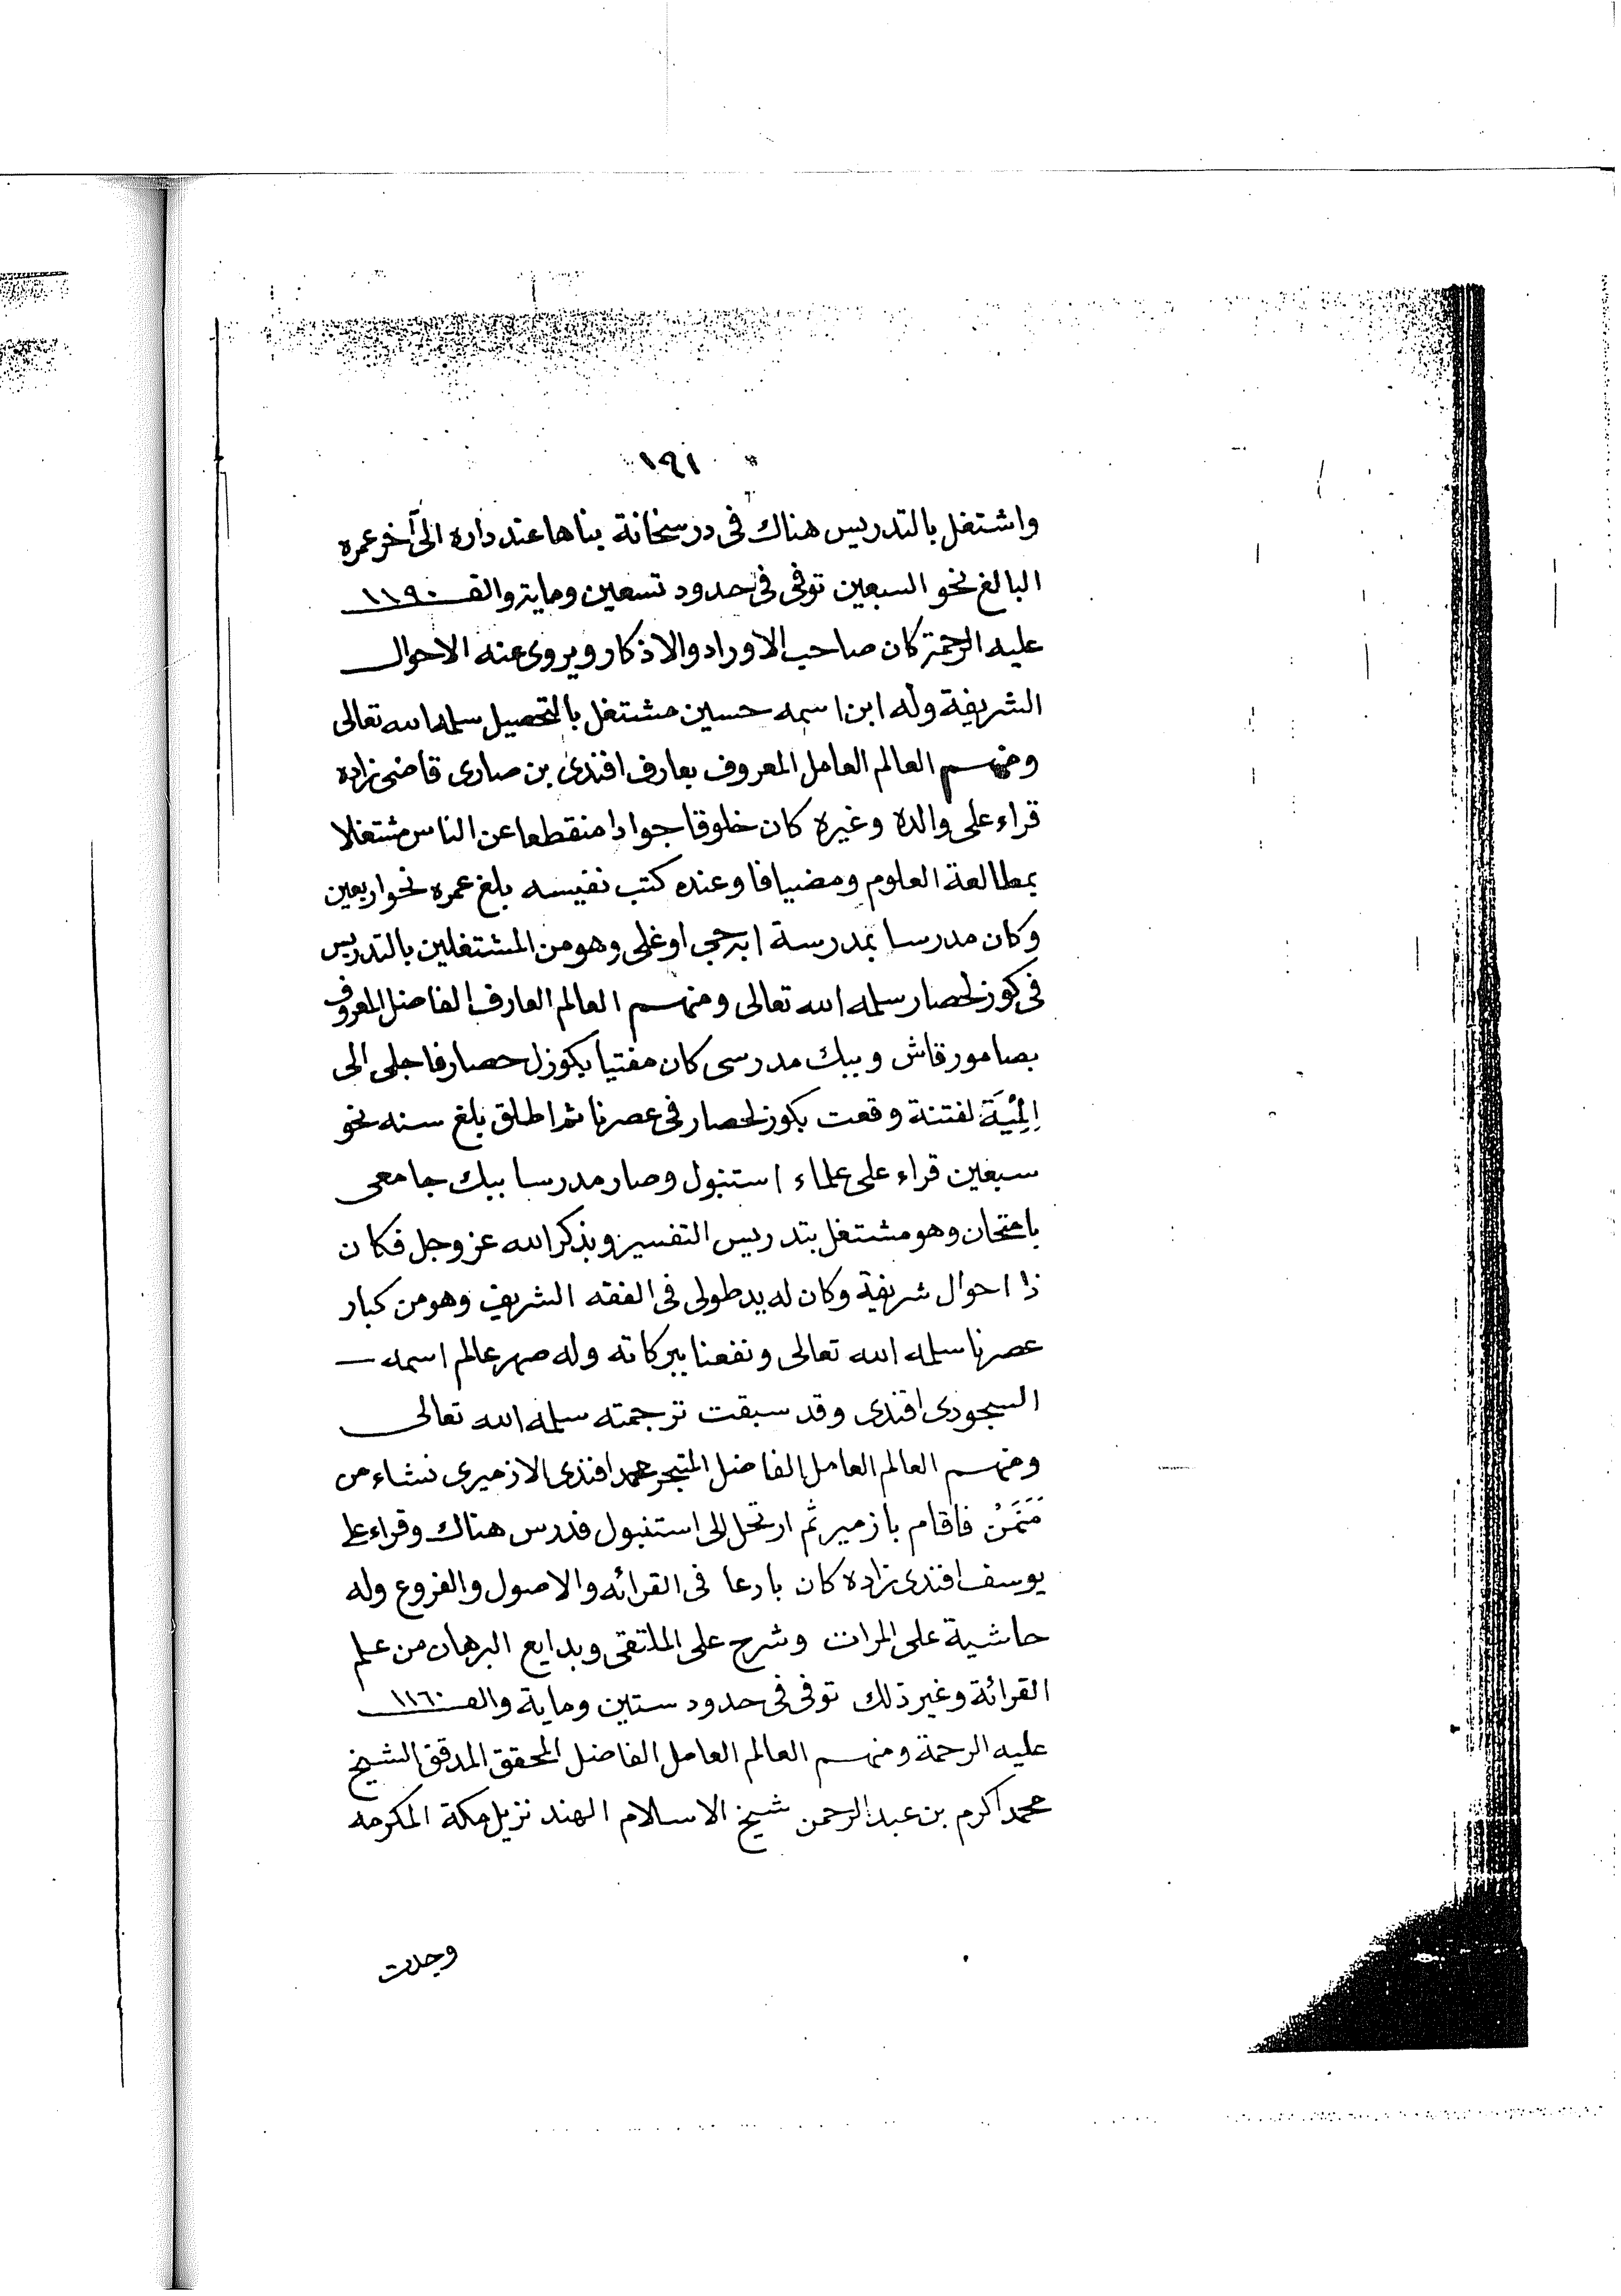 ١٩١
واشتغل بالتدريس هناك فى درسخانة بناها عند داره الى آخر عمره
البالغ نحو السبعين توفى فى حدود تسعين وماية والف ١١٩٠
عليه الرحمة كان صاحب الاوراد والاذكار ويروى عنه الاحوال
الشريفة وله ابن اسمه حسين مشتغل بالتحصيل سلمه الله تعالى
ومنهم العالم العامل المعروف بعارف افندى بن صارى قاضى زاده
قراء على والده وغيره كان خلوقا جوادا منقطعا عن الناس مشتغلا
بمطالعة العلوم ومضيافا وعنده كتب نفيسه بلغ عمره نحو اربعين
وكان مدرسا بمدرسة ابرجى اوغلى وهو من المشتغلين بالتدريس
فى كوزلحصار سلمه الله تعالى ومنهم العالم العارف الفاضل المعروف
بصامور قاش وببك مدرسى كان مفتيا بكوزل حصار فاجلى الى
اِلِمْيَةَ لفتنة وقعت بكوزلحصار فى عصرنا ثم اطلق بلغ سنه نحو
سبعين قراء على علماء استنبول وصار مدرسا ببك جامعى
بامتحان وهو مشتغل بتدريس التفسير وبذكر الله عز وجل فكان
ذا احوال شريفة وكان له يد طولى فى الفقه الشريف وهو من كبار
عصرنا سلمه الله تعالى ونفعنا ببركاته وله صهر عالم اسمه
السجودى افندى وقد سبقت ترجمته سلمه الله تعالى
ومنهم العالم العامل الفاضل المتبحر محمد افندى الازميرى نشاء من
مَنَمَنْ فاقام بازمير ثم ارتحل الى استنبول فدرس هناك وقراء على
يوسف افندى زاده كان بارعا فى القرائه والاصول والفروع وله
حاشية على المرات وشرح على الملتقى وبدايع البرهان من علم
القرائة وغير ذلك توفى فى حدود ستين وماية والف ١١٦٠
عليه الرحمة ومنهم العالم العامل الفاضل المحقق المدقق الشيخ
محمد اكرم بن عبد الرحمن شيخ الاسلام الهند نزيل مكة المكرمه
وجدت